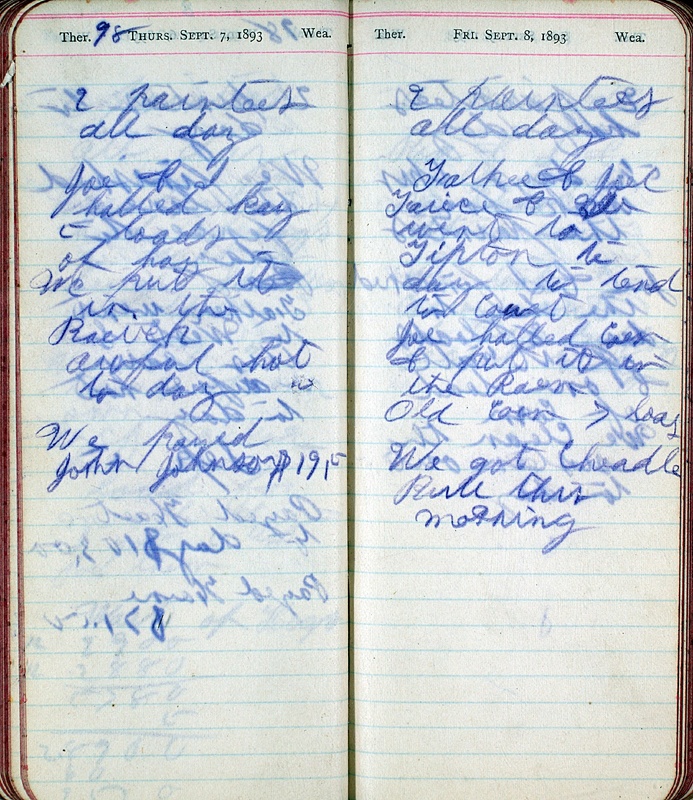 Ther. 98 THURS. SEPT. 7, 1893 Wea.
2 painters
all day
Joe & I
halled hay
5 loads
of hay
We put it
in the
awful hot
to day
We payed
John Johnson $19,15
Ther. FRI. SEPT. 8, 1893 Wea.
2 painters
all day
Father & Joe
went to
Tipton to
day to tend
to court
Joe halled Corn
& put it in
the Barn
Old Corn 7 loads
We got Cheadle
Bull this
morning